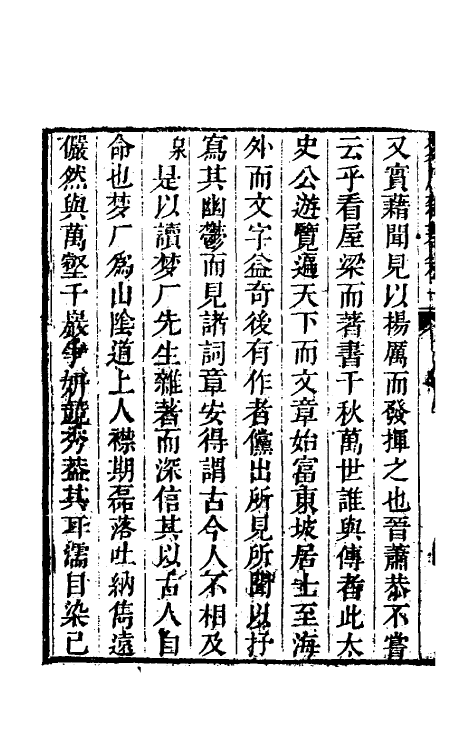 又實藉聞見以楊厲而發揮之也晉蕭恭不嘗
云乎看屋梁而著書千秋萬世誰與傳者此太
史公遊覽遍天下而文章始富東坡居士至海
外而文字益奇後有作者儻出所見所聞以抒
寫其幽鬱而見諸詞章安得謂古今人不相及
泉是以讀梦厂先生雜著而深信其以古人自
命也梦厂為山陰道上人襟期磊落吐納雋遠
儼然與萬壑千巖爭妍競秀葢其耳濡目染已